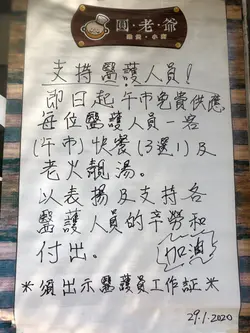 圓·老·爺
支持醫護人員!
即日起午市免費供應
每位醫護人員一客
(午市)快餐(3選1)及
老火靚湯。
以表揚及支持各
醫護人員的辛勞和
付出。
加油
*須出示醫護員工作証*
29.1.2020